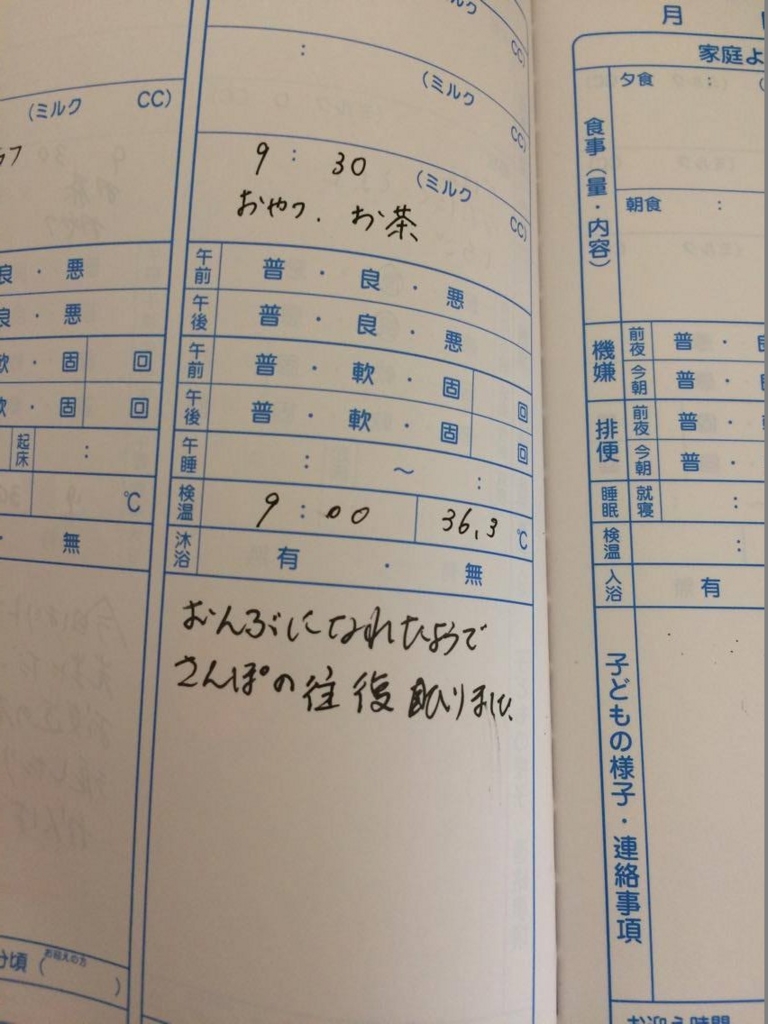 (ミルク CC)
57
良・悪
良・悪
軟・固 回
軟・固 回
起床 :
℃
・無
分頃(お迎えの方 )
(ミルク CC)
: (ミルク CC)
9:30 (ミルク CC)
おやつ、お茶、
午前 普・良・悪
午後 普・良・悪
午前 普・軟・固 回
午後 普・軟・固 回
午睡 : ～ :
検温 9:00 36.3 ℃
沐浴 有・無
おんぶになれたようで
さんぽの往復眠りました。
月
家庭よ
食事(量・内容)
夕食 :
朝食 :
機嫌 前夜 普・良
今朝 普・
排便 前夜 普・
今朝 普・
睡眠 就寝 :
検温 :
入浴 有
子どもの様子・連絡事項
お迎え時間